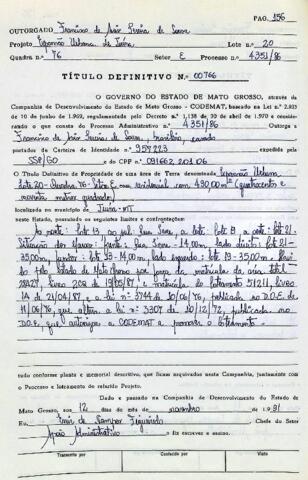 PAG. 156
OUTORGADO Francisco de
Projeto Expansão Urbana de Juína Lote n.º 20
Quadra n.º 76 Setor E Processo n.º 4351/86
TÍTULO DEFINITIVO N.º 00766
O GOVERNO DO ESTADO DE MATO GROSSO, através da
Companhia de Desenvolvimento do Estado de Mato Grosso - CODEMAT, baseado na Lei n.º 2.923
de 10 de junho de 1.969, regulamentado pelo Decreto n.º 1.138 de 30 de abril de 1970 e considerando
o que consta do Processo Administrativo n.º 4351/86 Outorga a
Francisco de brasileiro, casado
portador da Carteira de Identidade n.º 957223 expedida por
SSP/GO e do CPF n.º 091662 201 06
O Título Definitivo de Propriedade de uma área de Terra denominada Expansão Urbana
Lote 20 - Quadra 76 - Setor E residencial com 490,00m² (quatrocentos e
noventa metros quadrados)
localizada no município de Juína-MT
neste Estado, possuindo os seguintes limites e confrontações:
Ao norte: lote 19 ao sul Rua a leste: lote 19 a oeste: lote 21 -
frente: Rua 14,00m, lado direito: lote 21 -
35,00m, fundos: lote 14,00m, lado esquerdo: lote 19 - 35,00m.
pelo Estado de Mato Grosso por força da matrícula da área total
28427, livro 209 de 19/05/87 e matrícula do loteamento 51211, livro
1A de 21/04/87 e a lei n.º 3744 de 10/06/76, publicada no D.O.E. de
11/06/76, que altera a lei n.º 3307 de 10/12/72, publicada no
D.O.E. que autoriza a CODEMAT a promover o loteamento.
tudo conforme planta e memorial descritivo, que ficam arquivados nesta Companhia, juntamente com
o Processo e loteamento do referido Projeto.
Dado e passado na Companhia de Desenvolvimento do Estado de
Mato Grosso, aos 12 dias do mês de novembro de 1991
Eu de Campos Figueiredo Chefe do Setor
Apoio Administrativo o fiz escrever e assino.
Transcrito por Conferido por Visto